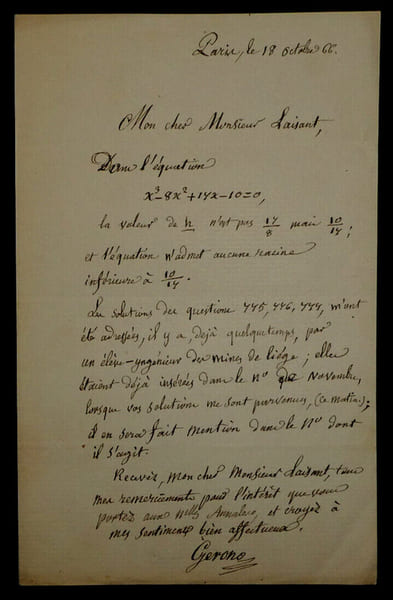 Paris, le 18 octobre 66.
Mon cher Monsieur Laisant,
Dans l'équation
x³-8x²+17x-10=0,
la valeur de h n'est pas 17/8 mais 10/17;
et l'équation n'admet aucune racine
inférieure à 10/17.
Les solutions des questions 775, 776, 777, m'ont
été adressées, il y a, déjà quelque temps, par
un élève-yngénieur des mines de Liége; elles
étaient déjà insérées dans le n° de Novembre,
lorsque vos solutions me sont parvenues, (ce matin);
il en sera fait mention dans le N° dont
il s'agit.
Recevez, mon cher Monsieur Laisant, tous
mes remerciements pour l'intérêt que vous
portez aux nlles Annales, et croyez à
mes sentiments bien affectueux.
Gerono